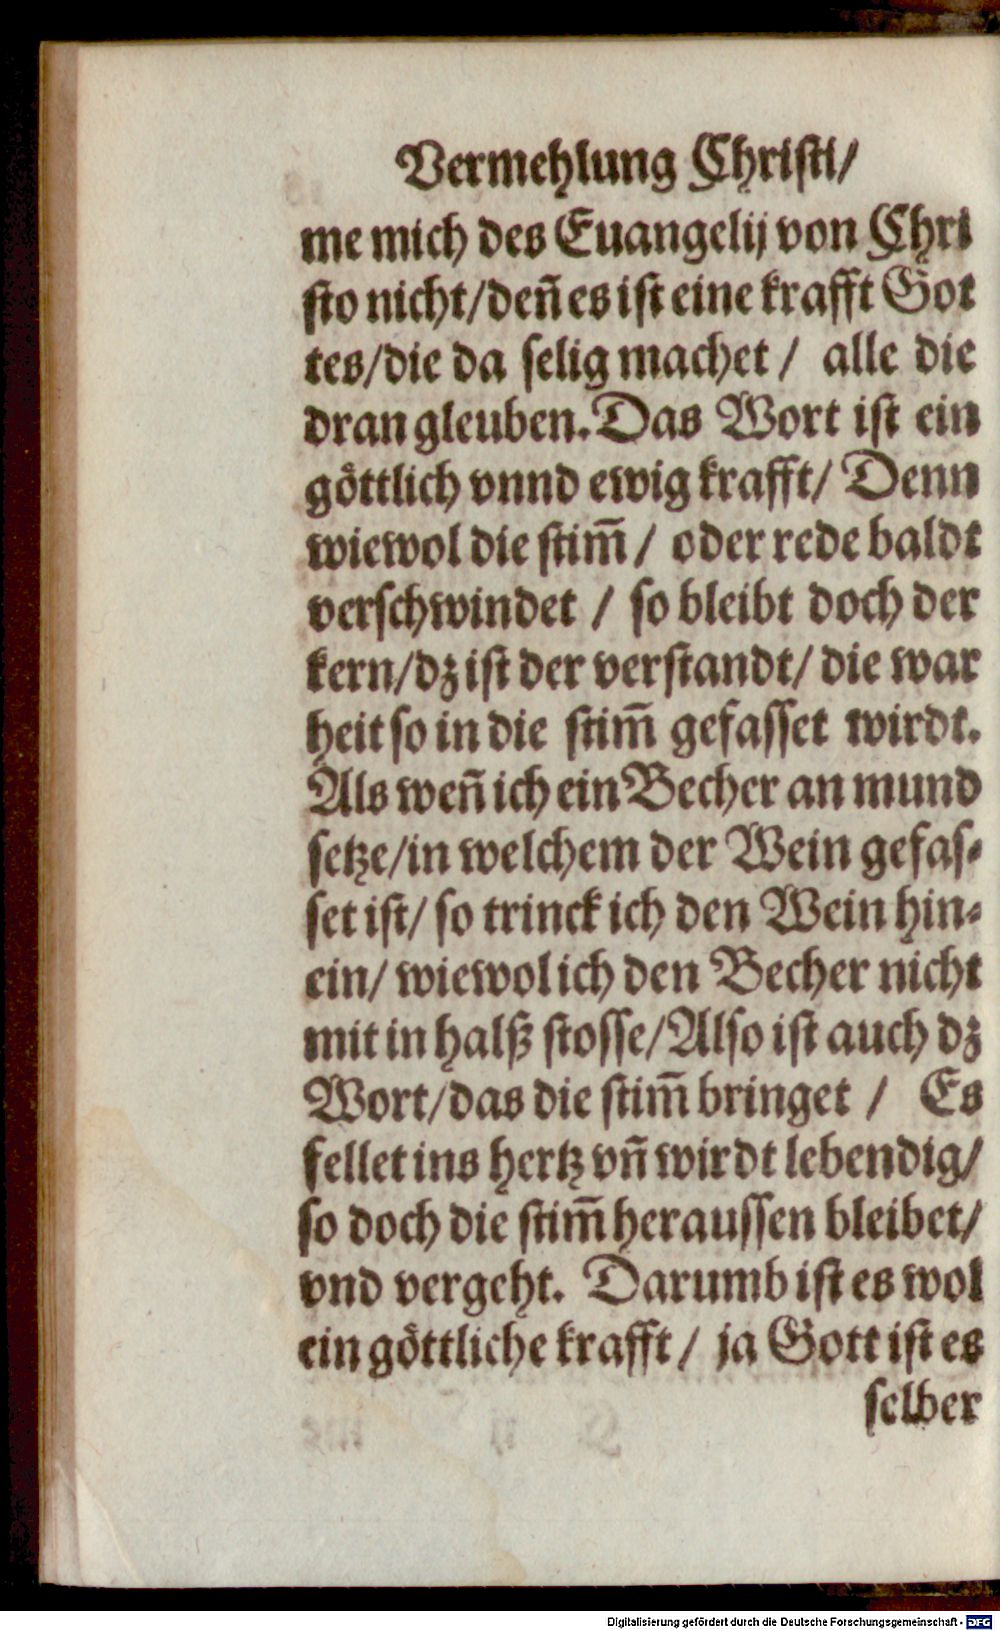 Vermehlung Christi/
me mich des Euangelij von Chri
sto nicht/deñ es ist eine krafft Got
tes/die da selig machet / alle die
dran gleuben. Das Wort ist ein
göttlich vnnd ewig krafft/ Denn
wiewol die stim̃ / oder rede baldt
verschwindet / so bleibt doch der
kern/dz ist der verstandt/ die war
heit so in die stim̃ gefasset wirdt.
Als weñ ich ein Becher an mund
setze/in welchem der Wein gefas-
set ist/ so trinck ich den Wein hin-
ein/ wiewol ich den Becher nicht
mit in halß stosse/Also ist auch dz
Wort/das die stim̃ bringet / Es
fellet ins hertz vñ wirdt lebendig/
so doch die stim̃ heraussen bleibet/
vnd vergeht. Darumb ist es wol
ein göttliche krafft/ ja Gott ist es
selber
Digitalisierung gefördert durch die Deutsche Forschungsgemeinschaft - DFG